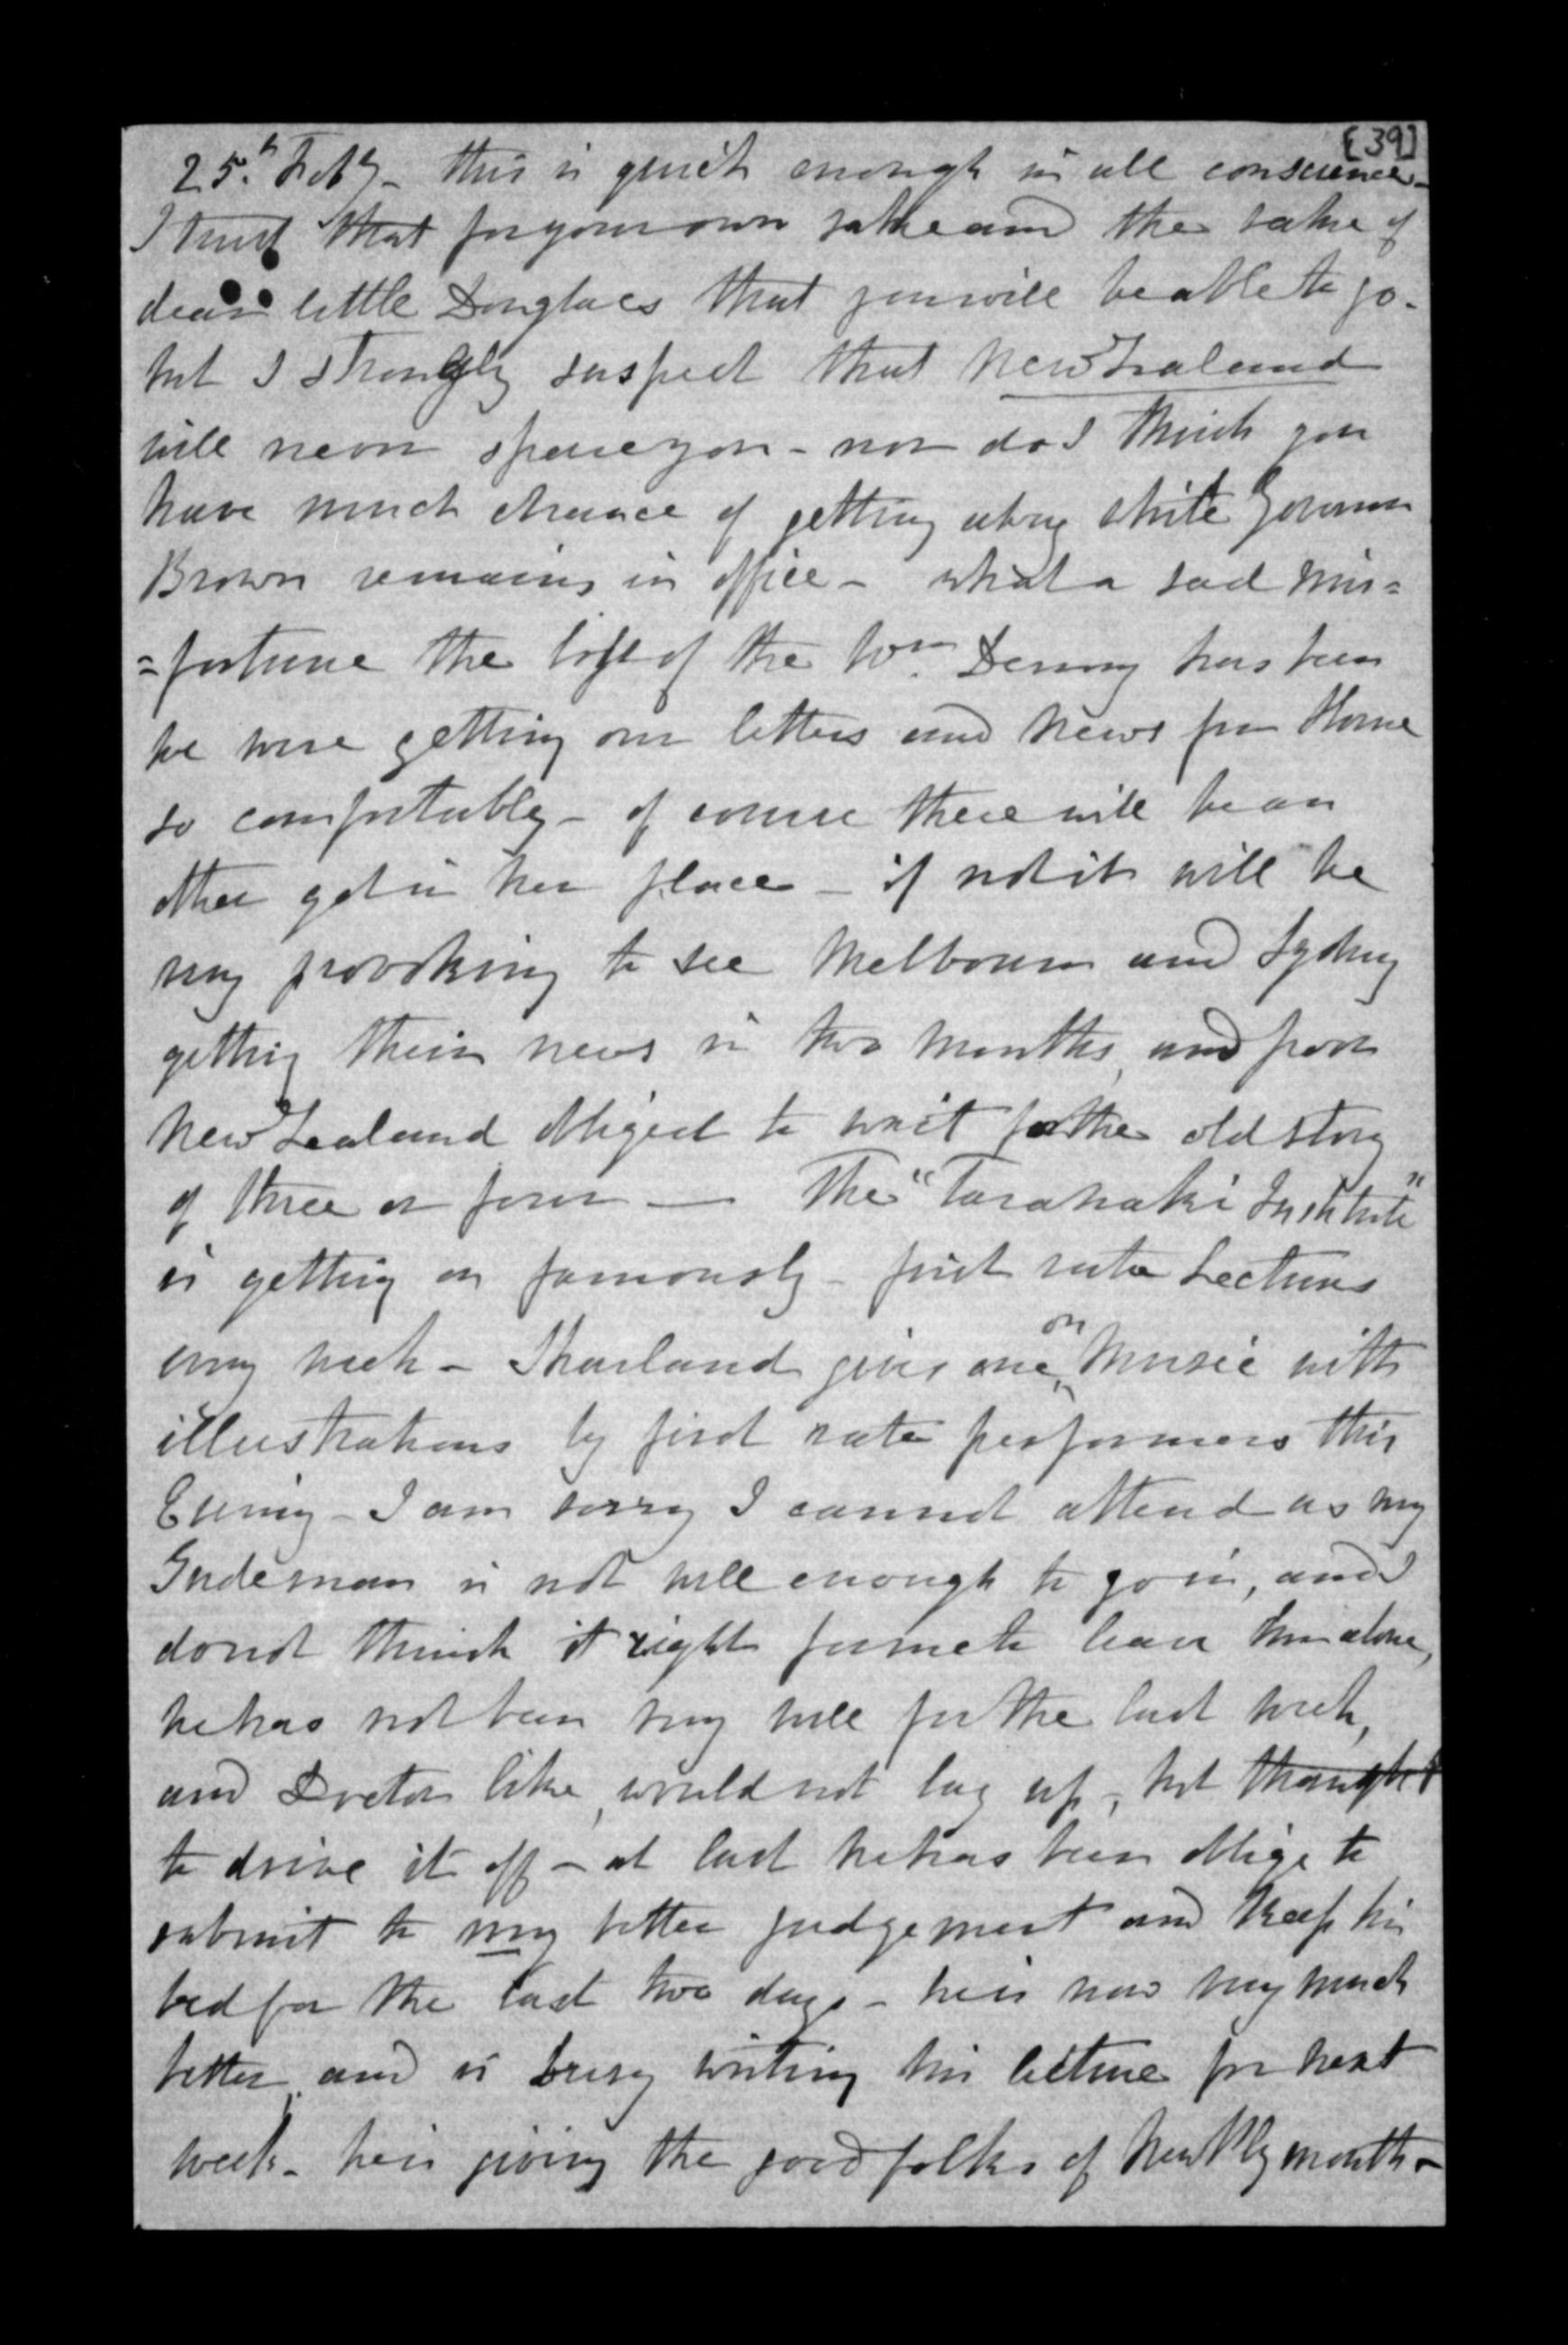 [39]
25.th Feby - this is quick enough in all conscience -
I trust that for your own sake and the sake of
dear little Douglas that you will be able to go -
but I strongly suspect that New Zealand
will never spare you - nor do I think you
have much chance of getting away while Governor
Brown remains in office - what a sad mis=
=fortune the loss of the Wm. Denny has been
we were getting our letters and news from Home
so comfortably - of course there will be an
other got in her place - if not it will be
very provoking to see Melbourne and Sydney
getting their news in two months, and poor
New Zealand obliged to wait for the old story
of three or four - The "Taranaki Institute"
is getting on famously - first rate Lectures
every week - Sharland gives one on Music with
illustrations by first rate performers this
Evening - I am sorry I cannot attend as my
Gudeman is not well enough to go in, and I
do not think it right for me to leave him alone,
he has not been very well for the last week,
and Doctor like, would not lay up, but thought
to drive it off - at last he has been oblige to
submit to my better judgement and keep his
bed for the last two days - he is now very much
better, and is busy writing his lecture for next
week - he is giving the good folks of New Plymouth -